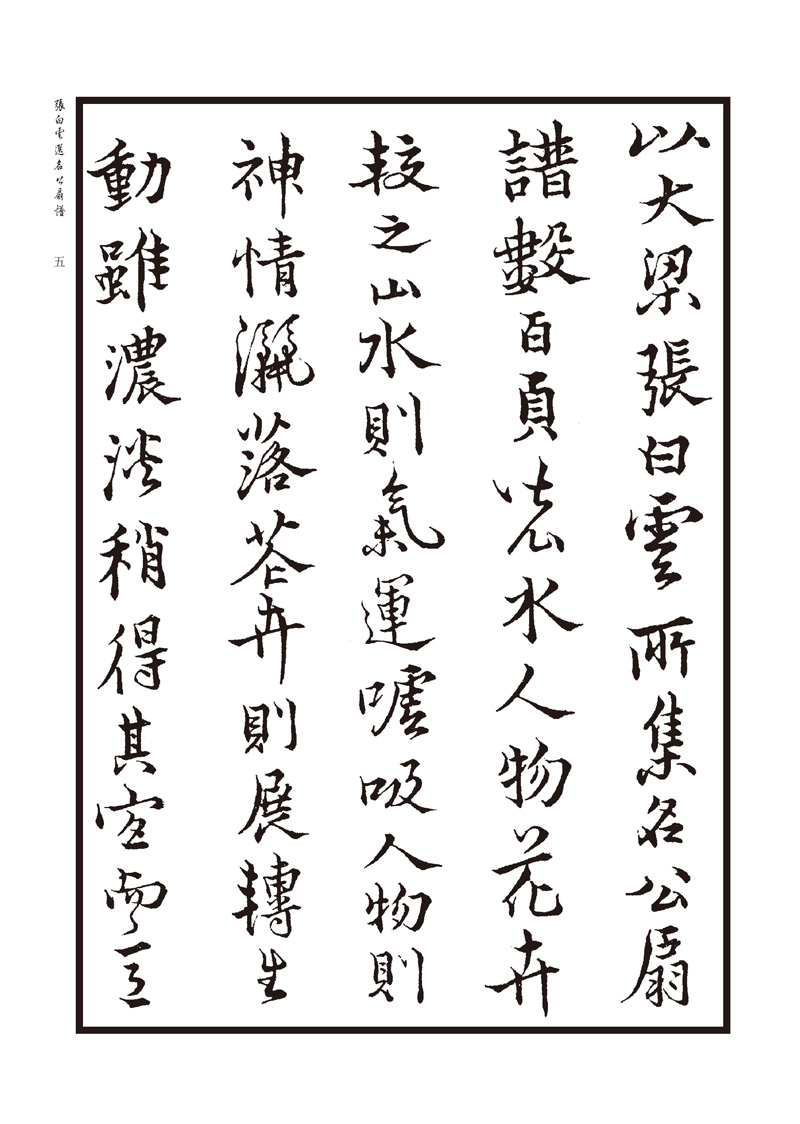 張白雲選名公扇譜
五
以大梁張白雲所集名公扇
譜數百頁水人物花卉
較之山水則氣運噓吸人物則
神情灑落花卉則展轉生
動雖濃淡稍得其宜